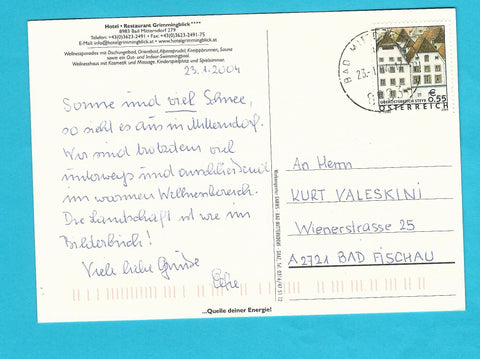 Hotel • Restaurant Grimmingblick****
8983 Bad Mitterndorf 279
Telefon: ++43(0)3623-2491 • Fax: ++43(0)3623-2491-75
E-Mail: info@hotelgrimmingblick.at • www.hotelgrimmingblick.at
Wellnessparadies mit Dschungelbad, Orientbad, Alpensprudel, Kneippbrunnen, Sauna
sowie ein Out- und Indoor-Swimmingpool.
Wellnesshaus mit Kosmetik und Massage, Kinderspielplatz und Spielzimmer.
23.1.2004
Sonne und viel Schnee,
so sieht es aus in Mitterndorf.
Wir sind trotzdem viel
unterwegs und anschließend
im warmen Wellnessbereich.
Die Landschaft ist wie im
Bilderbuch!
Viele liebe Grüße
...Quelle deiner Energie!
BAD MIT
23.-1.
€
0,55
OBERÖSTERREICH STEYR
ÖSTERREICH
An Herrn
KURT VALESKINI
Wienerstrasse 25
A 2721 BAD FISCHAU